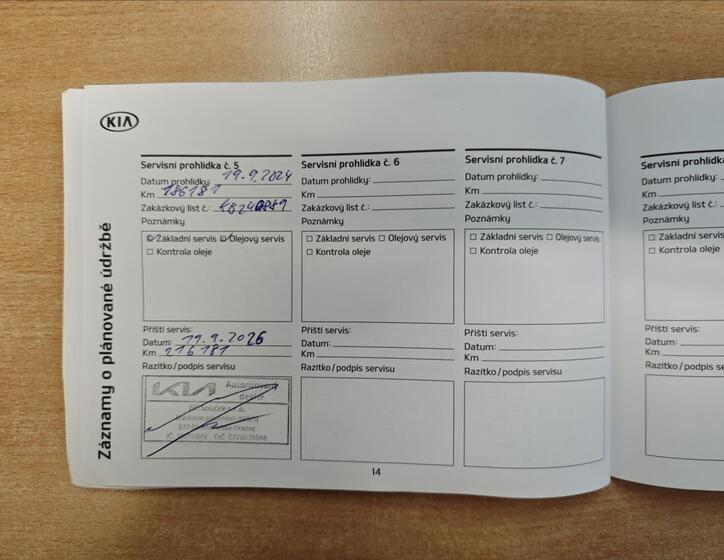 KIA
Záznamy o plánované údržbě
Servisní prohlídka č. 5
Datum prohlídky: 19.9.2024
Km 186181
Zakázkový list č.:
Poznámky
Základní servis Olejový servis
Kontrola oleje
Příští servis:
Datum: 19.9.2026
Km 216181
Razítko/podpis servisu
KIA Autorizovaný
dealer
Servisní prohlídka č. 6
Datum prohlídky:
Km
Zakázkový list č.:
Poznámky
Základní servis Olejový servis
Kontrola oleje
Příští servis:
Datum:
Km
Razítko/podpis servisu
Servisní prohlídka č. 7
Datum prohlídky:
Km
Zakázkový list č.:
Poznámky
Základní servis Olejový servis
Kontrola oleje
Příští servis:
Datum:
Km
Razítko/podpis servisu
Servisní prohlídk
Datum prohlídky:
Km
Zakázkový list č.:
Poznámky
Základní servis
Kontrola oleje
Příští servis:
Datum:
Km
Razítko/podpis serv
14